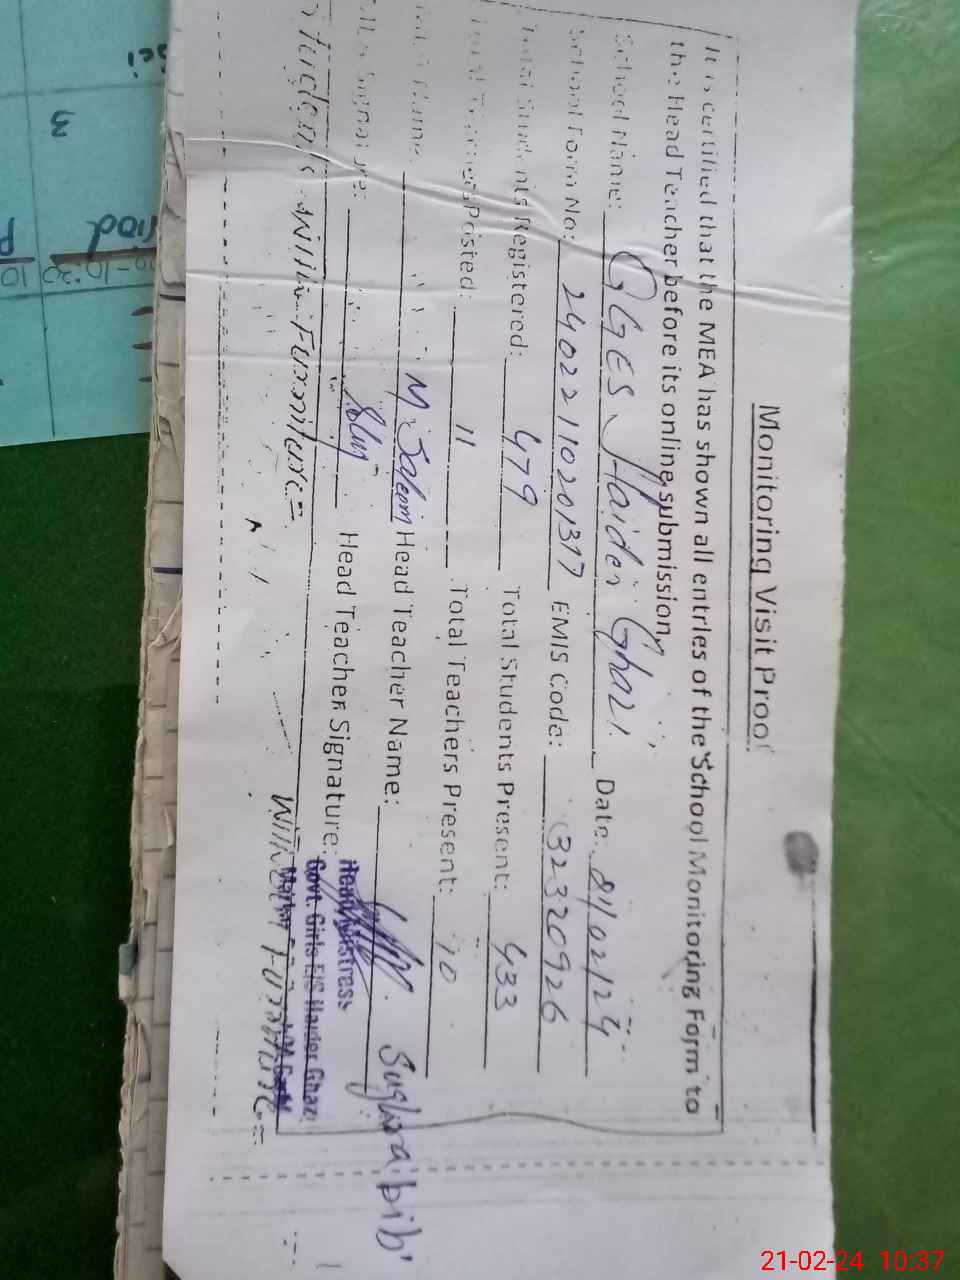 Monitoring Visit Proof
It is certified that the MEA has shown all entries of the School Monitoring Form to
the Head Teacher before its online submission.
School Name: GGES Haider Ghazi Date: 21/02/24
School Form No: 24022110201317 EMIS Code: 32320926
Total Students Registered: 479 Total Students Present: 433
Total Teachers Posted: 11 Total Teachers Present: 10
Name: M. Saleem Head Teacher Name: Sughra bibi
Signature: Head Teacher Signature:
Headmistress
Govt. Girls E/S Haider Ghazi
Students Within Furniture=
Furniture=
3
10:30
21-02-24 10:37